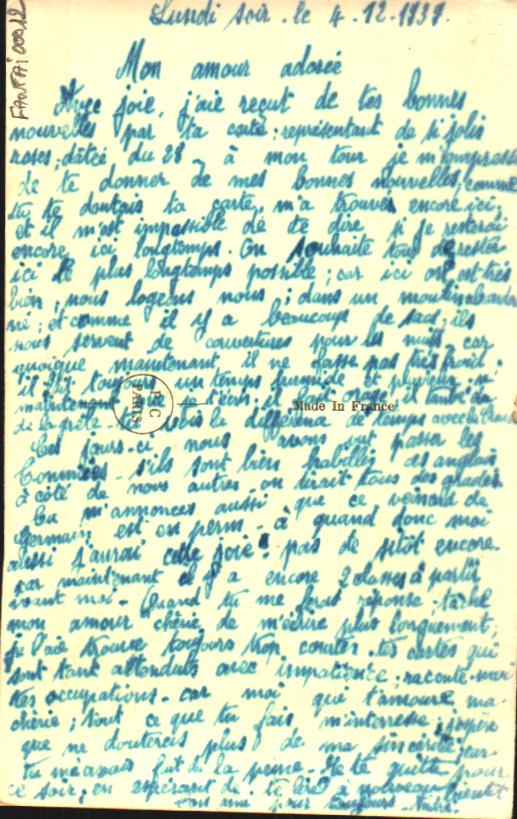 FANTAI 00912
Lundi soir. le 4.12.1939.
Mon amour adorée
Avec joie, j'aie reçut de tes bonnes
nouvelles par ta carte; représentant de si jolis
roses; dâtée du 28 - à mon tour je m'empresse
de te donner de mes bonnes nouvelles; comme
tu te doutais ta carte, m'a trouver encore ici;
et il m'est impossible de te dire, si je resterai
encore ici longtemps. On souhaite tous de rester
ici le plus longtemps possible; car ici on est très
bien; nous logeons nous; dans un moulin abandon
né; et comme il y a beaucoup de sac; ils
nous servent de couvertures pour les nuits, car
quoique maintenant il ne fasse pas très froid.
il y a toujours un temps humide et pluvieux
maintenant que t'écris; il il tombe
de la grêle. la différence de temps avec
Ces jours-ci nous avons vut passer les
s'ils sont bien habillés des anglais
à côté de nous autres. on dirait tous des gradés
Tu m'annonces aussi que ce veinard de
Germain est en perm. à quand donc moi
aussi j'aurai cette joie! pas de sitôt encore.
car maintenant il y a encore 2 classes à partir
avant moi. Quand tu me feras réponse; tâche
mon amour chérie de m'écrire plus longuement;
je l'aie trouve toujours trop courtes. tes cartes qui
sont tant attendues avec impatience. raconte-moi
tes occupations. car moi qui t'amoure ma
chérie; tout ce que tu fais m'interresse; j'espère
que ne douterais plus de ma sincérité; car
tu m'avais fait de la peine. Je te quitte pour
ce soir; en espérant de te lire à nouveau bientôt
Ton ami pour toujours. André.
P.C
PARIS
Made In France